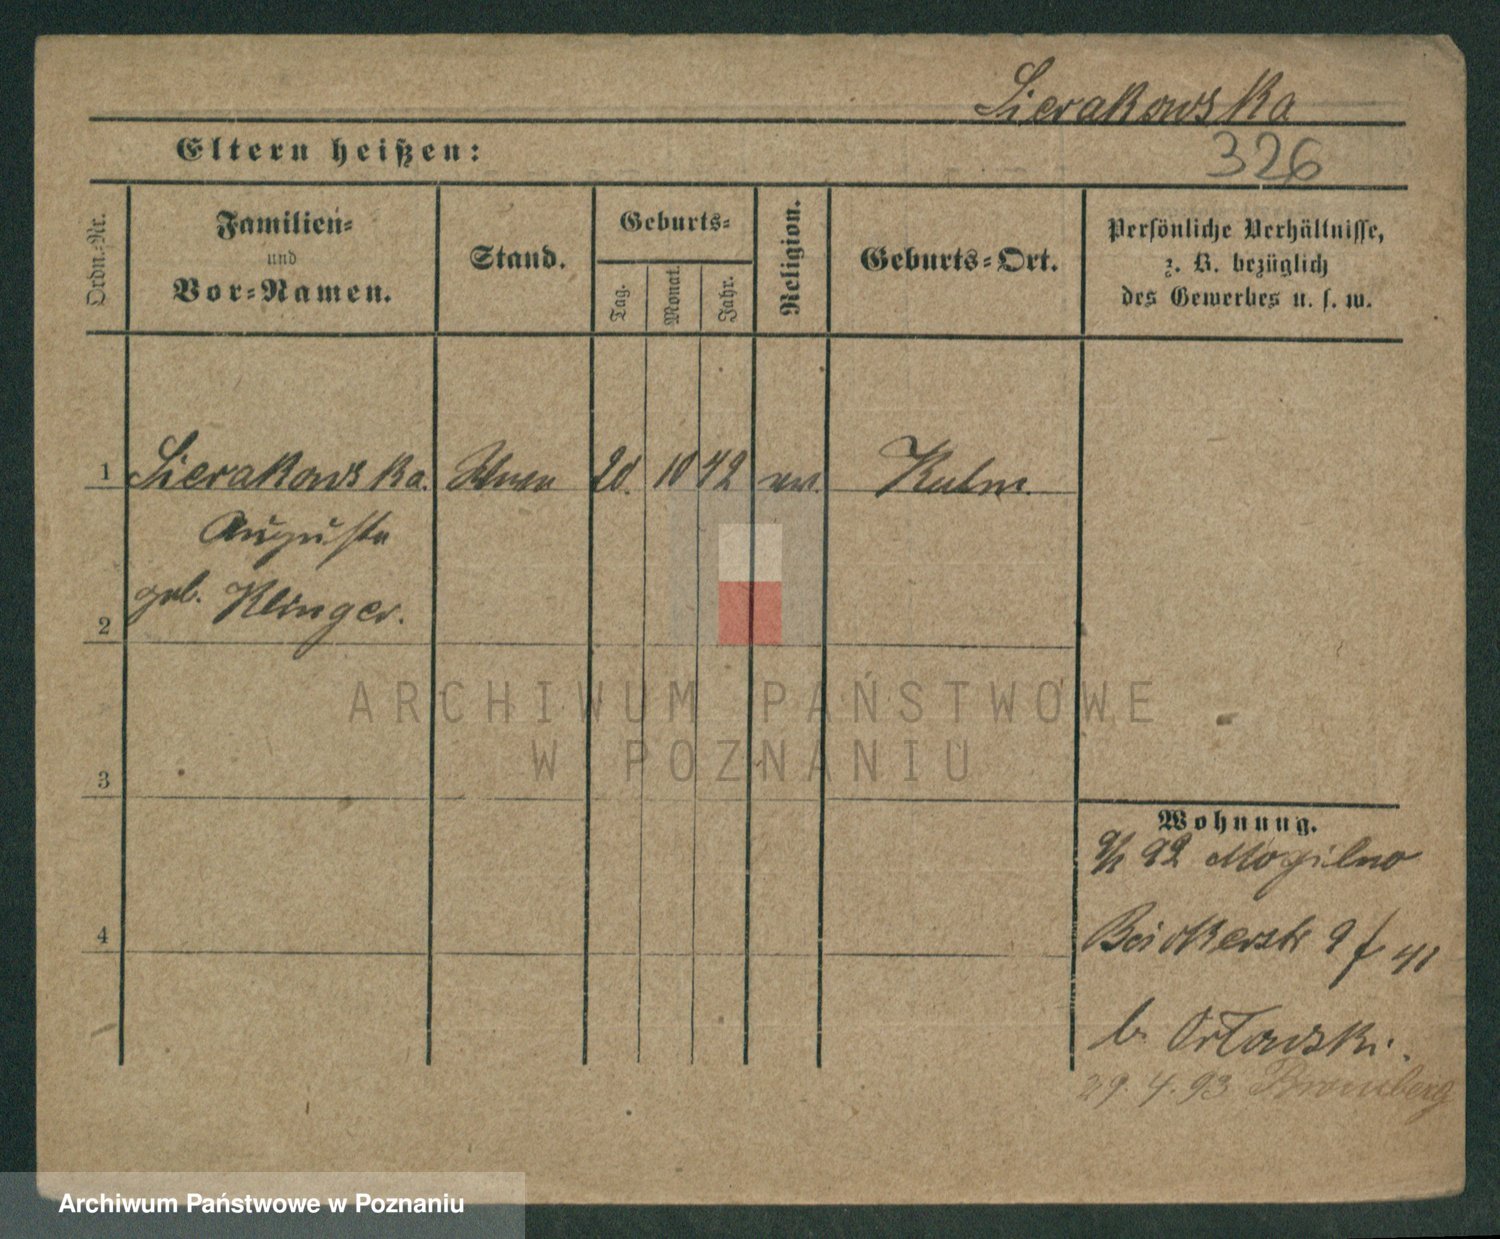 Sierakowska
Eltern heißen:
326
Ordn.-Nr.
Familien-
und
Vor-Namen.
Stand.
Geburts-
Tag.
Monat.
Jahr.
Religion.
Geburts-Ort.
Persönliche Verhältnisse,
z. B. bezüglich
des Gewerbes u. s. w.
1 Sierakowska. 20. 10 42 Kulm.
Auguste
geb. Klinger.
2
3
4
ARCHIWUM PAŃSTWOWE
W POZNANIU
Wohnung.
92 Mogilno
Bäckerstr 9
b. Orłowski.
29. 4. 93 Bromberg
Archiwum Państwowe w Poznaniu